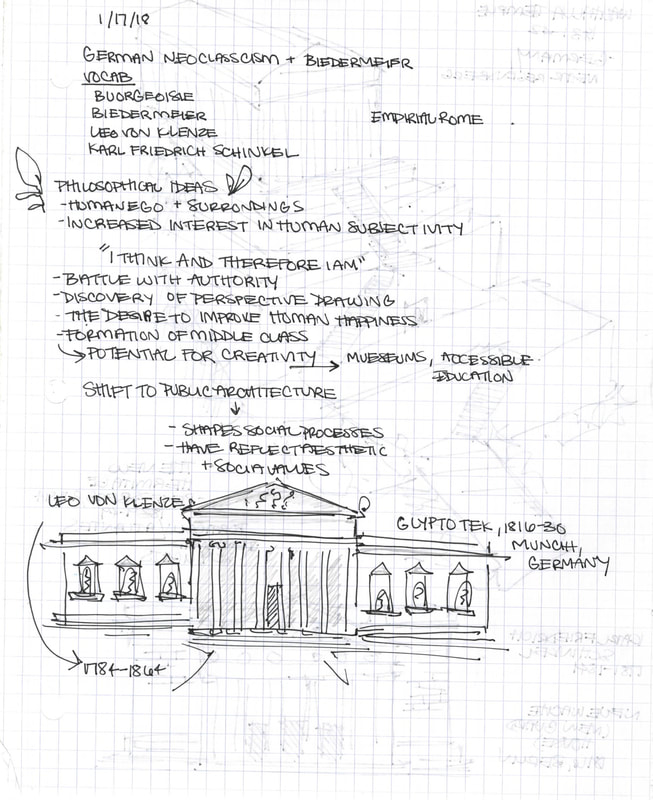 1/17/18
GERMAN NEOCLASSCISM + BIEDERMEIER
VOCAB
BUORGEOISIE
BIEDERMEIER
EMPIRIAL ROME
LEO VON KLENZE
KARL FRIEDRICH SCHINKEL
PHILOSOPHICAL IDEAS
- HUMAN EGO + SURRONDINGS
- INCREASED INTEREST IN HUMAN SUBJECTIVITY
"I THINK AND THEREFORE I AM"
- BATTLE WITH AUTHORITY
- DISCOVERY OF PERSPECTIVE DRAWING
- THE DESIRE TO IMPROVE HUMAN HAPPINESS
- FORMATION OF MIDDLE CLASS
POTENTIAL FOR CREATIVITY → MUESEUMS, ACCESSIBLE
EDUCATION
SHIFT TO PUBLIC ARCHITECTURE
↓
- SHAPES SOCIAL PROCESSES
- HAVE REFLECT AESTHETIC
+ SOCIAL VALUES
LEO VON KLENZE
GLYPTOTEK, 1816-30
MUNCHI,
GERMANY
1784-1864